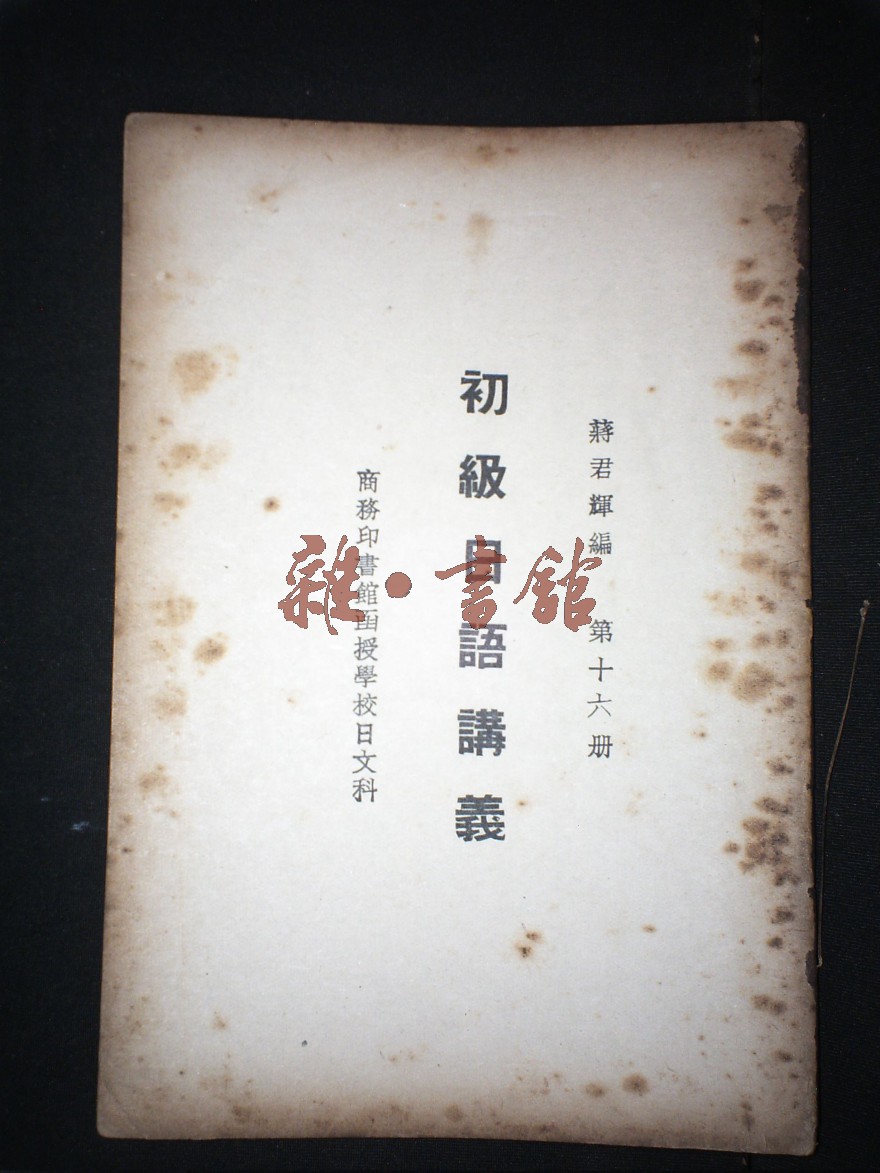 蔣君輝編 第十六册
初級日語講義
商務印書館函授學校日文科
雜·書館